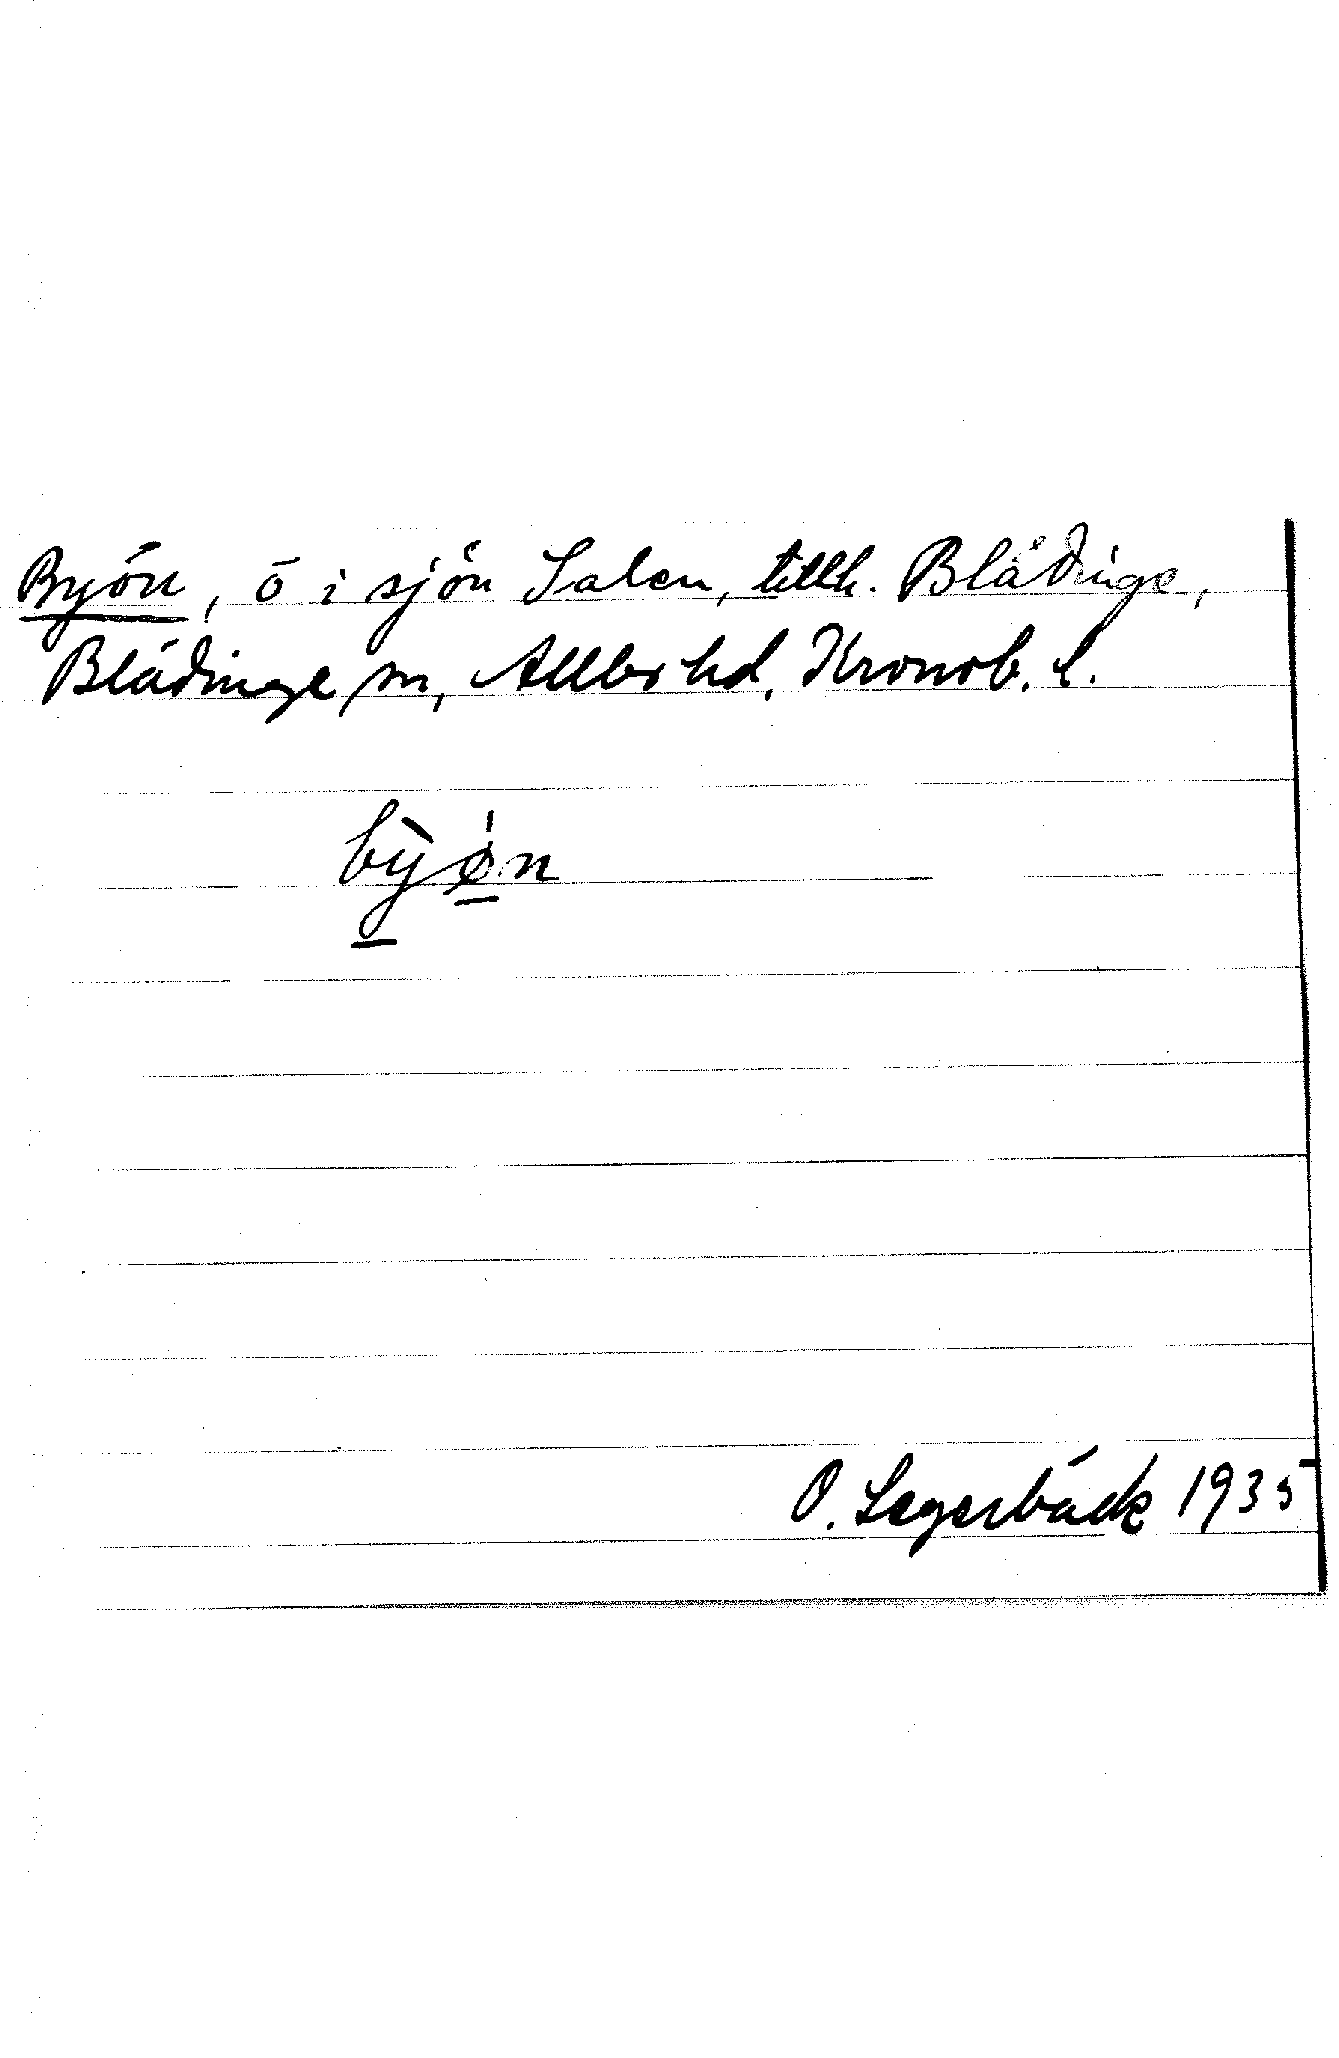 Byön, ö i sjön Salen, tillh. Blädinge,
Blädinge sn, Allbo hd, Kronob. l.
bỳ̱ǿ̱n
O. Lagerbäck 1935